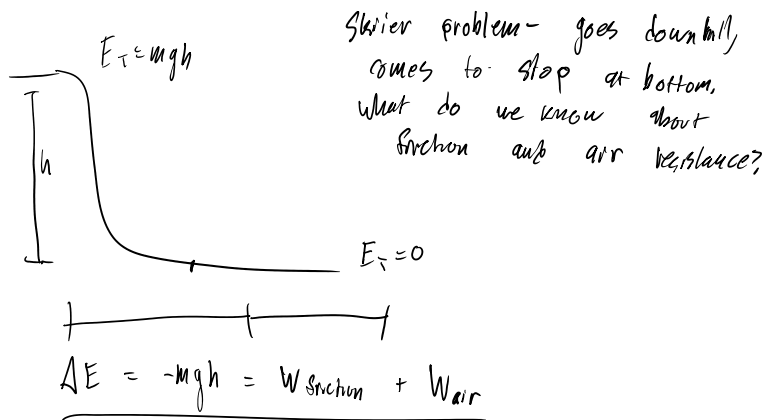 Skiier problem- goes downhill,
comes to stop at bottom.
What do we know about
friction and air resistance?
E_T = mgh
h
E_T = 0
ΔE = -mgh = W friction + W air